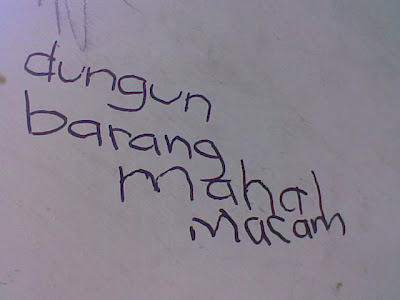 dungun
barang
mahal
macam